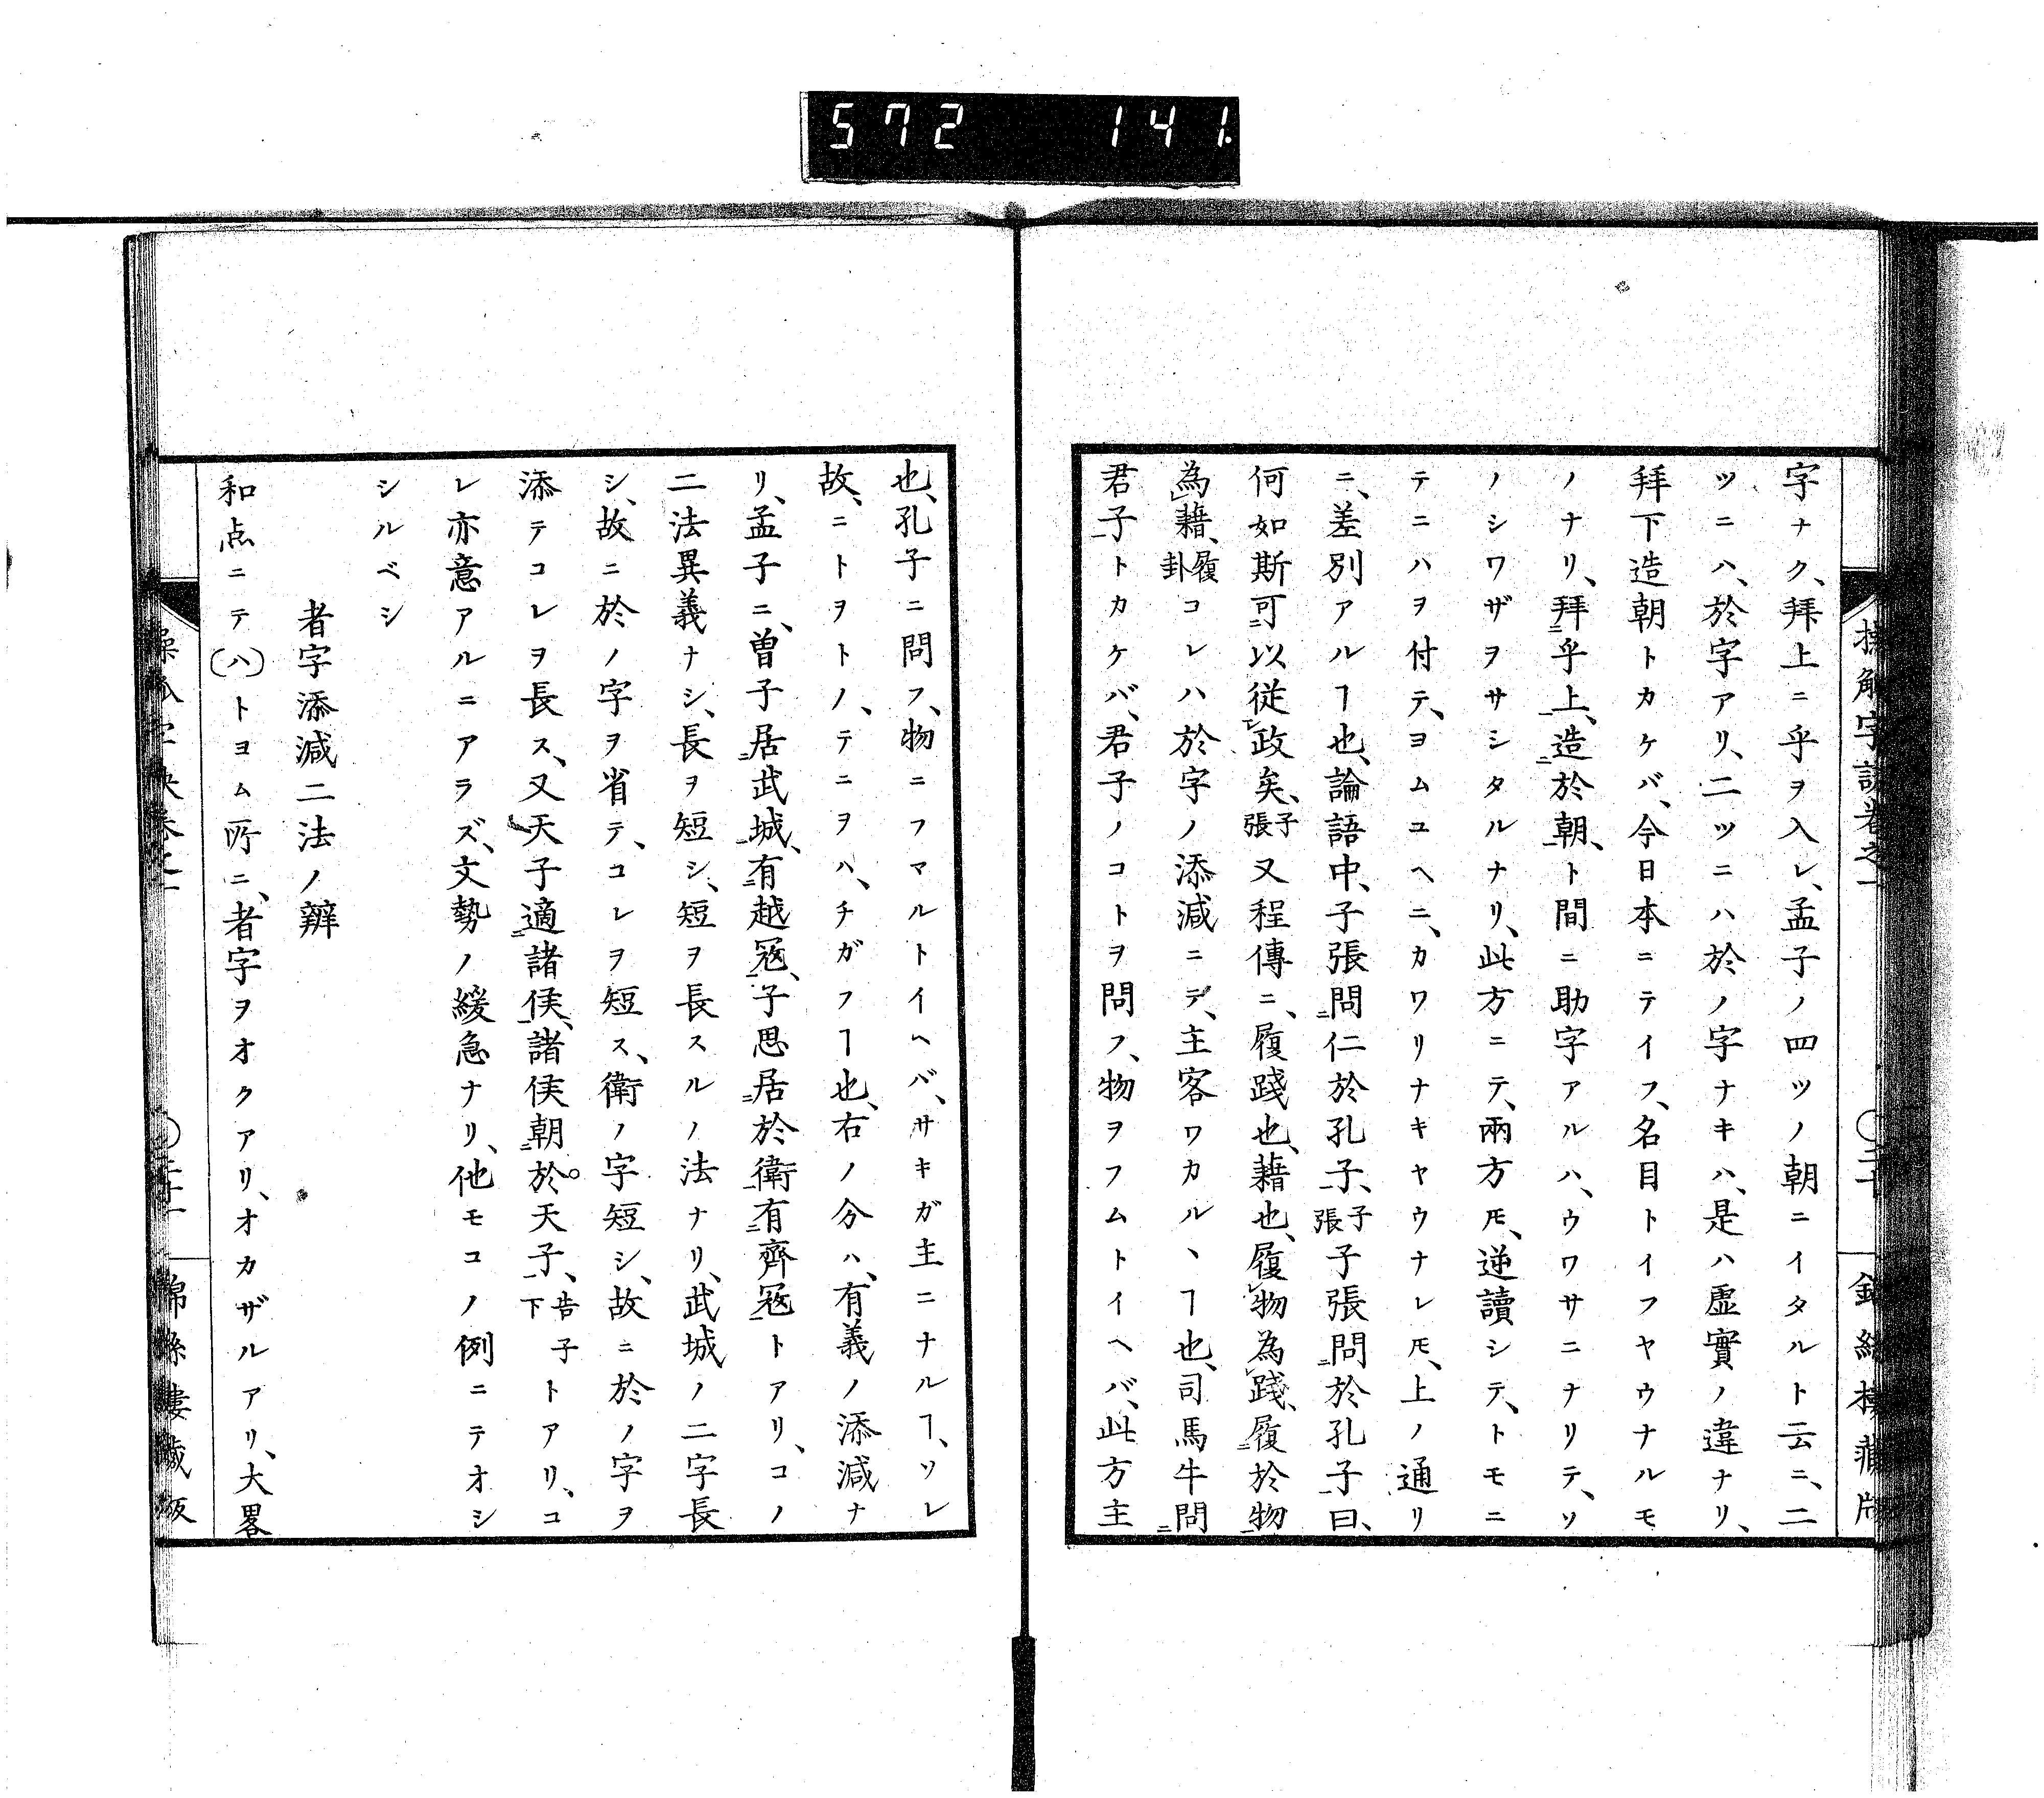 572 141
字ナク、拜上ニ乎ヲ入レ、孟子ノ四ツノ朝ニイタルト云ニ、二
ツニハ、於字アリ、二ツニハ於ノ字ナキハ、是ハ虛實ノ違ナリ、
拜下造朝トカケバ、今日本ニテイフ、名目トイフヤウナルモ
ノナリ、拜二乎上一、造二於朝一、ト間ニ助字アルハ、ウワサニナリテ、ソ
ノシワザヲサシタルナリ、此方ニテ、兩方𪜈、逆讀シテ、トモニ
テニハヲ付テ、ヨムユヘニ、カワリナキヤウナレ𪜈、上ノ通リ
ニ、差別アルヿ也、論語中、子張問二仁於孔子一、子張子張問二於孔子一曰、
何如斯可二以從一レ政矣、子張又程傳ニ、履踐也、藉也、履レ物為レ踐、履二於物一
為レ藉、履卦コレハ於字ノ添減ニテ、主客ワカルヽヿ也、司馬牛問二
君子一トカケバ、君子ノコトヲ問フ、物ヲフムトイヘバ、此方主
也、孔子ニ問フ、物ニフマルトイヘバ、サキガ主ニナルヿ、ソレ
故、ニトヲトノ、テニヲハ、チガフヿ也、右ノ分ハ、有義ノ添減ナ
リ、孟子ニ、曽子居二武城一、有二越冦一、子思居二於衛一有二齊冦一トアリ、コノ
二法異義ナシ、長ヲ短シ、短ヲ長スルノ法ナリ、武城ノ二字長
シ、故ニ於ノ字ヲ省テ、コレヲ短ス、衛ノ字短シ、故ニ於ノ字ヲ
添テコレヲ長ス、又天子適二諸侯一、諸侯朝二於天子一、告子下トアリ、コ
レ亦意アルニアラズ、文勢ノ緩急ナリ、他モコノ例ニテオシ
シルベシ
者字添減二法ノ辨
和点ニテ(ハ)トヨム所ニ、者字ヲオクアリ、オカザルアリ、大畧